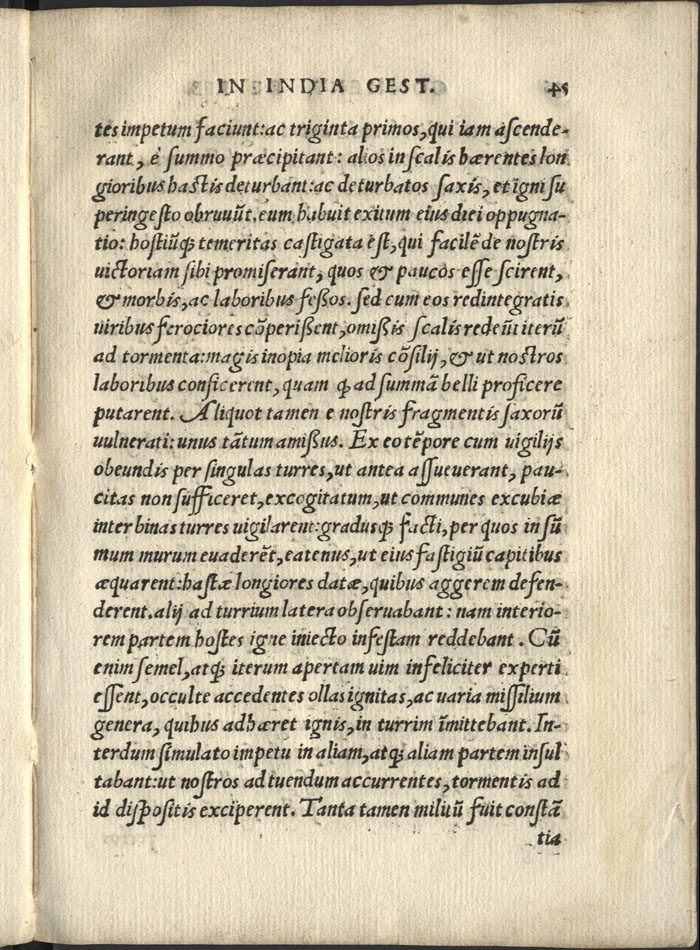 IN INDIA GEST. 45
tes impetum faciunt:ac triginta primos, qui iam ascende-
rant, è summo præcipitant: alios in scalis hærentes lon
gioribus hastis deturbant:ac deturbatos saxis, et igni su
peringesto obruuũt. eum habuit exitum eius diei oppugna-
tio: hostiũq; temeritas castigata est, qui facilè de nostris
uictoriam sibi promiserant, quos & paucos esse scirent,
& morbis, ac laboribus fessos. sed cum eos redintegratis
uiribus ferociores cõperissent, omissis scalis redeũt iterũ
ad tormenta:magis inopia melioris cõsilij, & ut nostros
laboribus conficerent, quam ꝙ ad summã belli proficere
putarent. Aliquot tamen e nostris fragmentis saxorũ
uulnerati: unus tãtum amissus. Ex eo tẽpore cum uigilijs
obeundis per singulas turres, ut antea assueuerant, pau-
citas non sufficeret, excogitatum, ut communes excubiæ
inter binas turres uigilarent:gradusq; facti, per quos in sũ
mum murum euaderẽt, eatenus, ut eius fastigiũ capitibus
æquarent:hastæ longiores datæ, quibus aggerem defen-
derent. alij ad turrium latera obseruabant: nam interio-
rem partem hostes igne iniecto infestam reddebant. Cũ
enim semel, atq; iterum apertam uim infeliciter experti
essent, occulte accedentes ollas ignitas, ac uaria missilium
genera, quibus adhæret ignis, in turrim ĩmittebant. In-
terdum simulato impetu in aliam, atq; aliam partem insul
tabant:ut nostros ad tuendum accurrentes, tormentis ad
id dispositis exciperent. Tanta tamen militũ fuit constã
tia